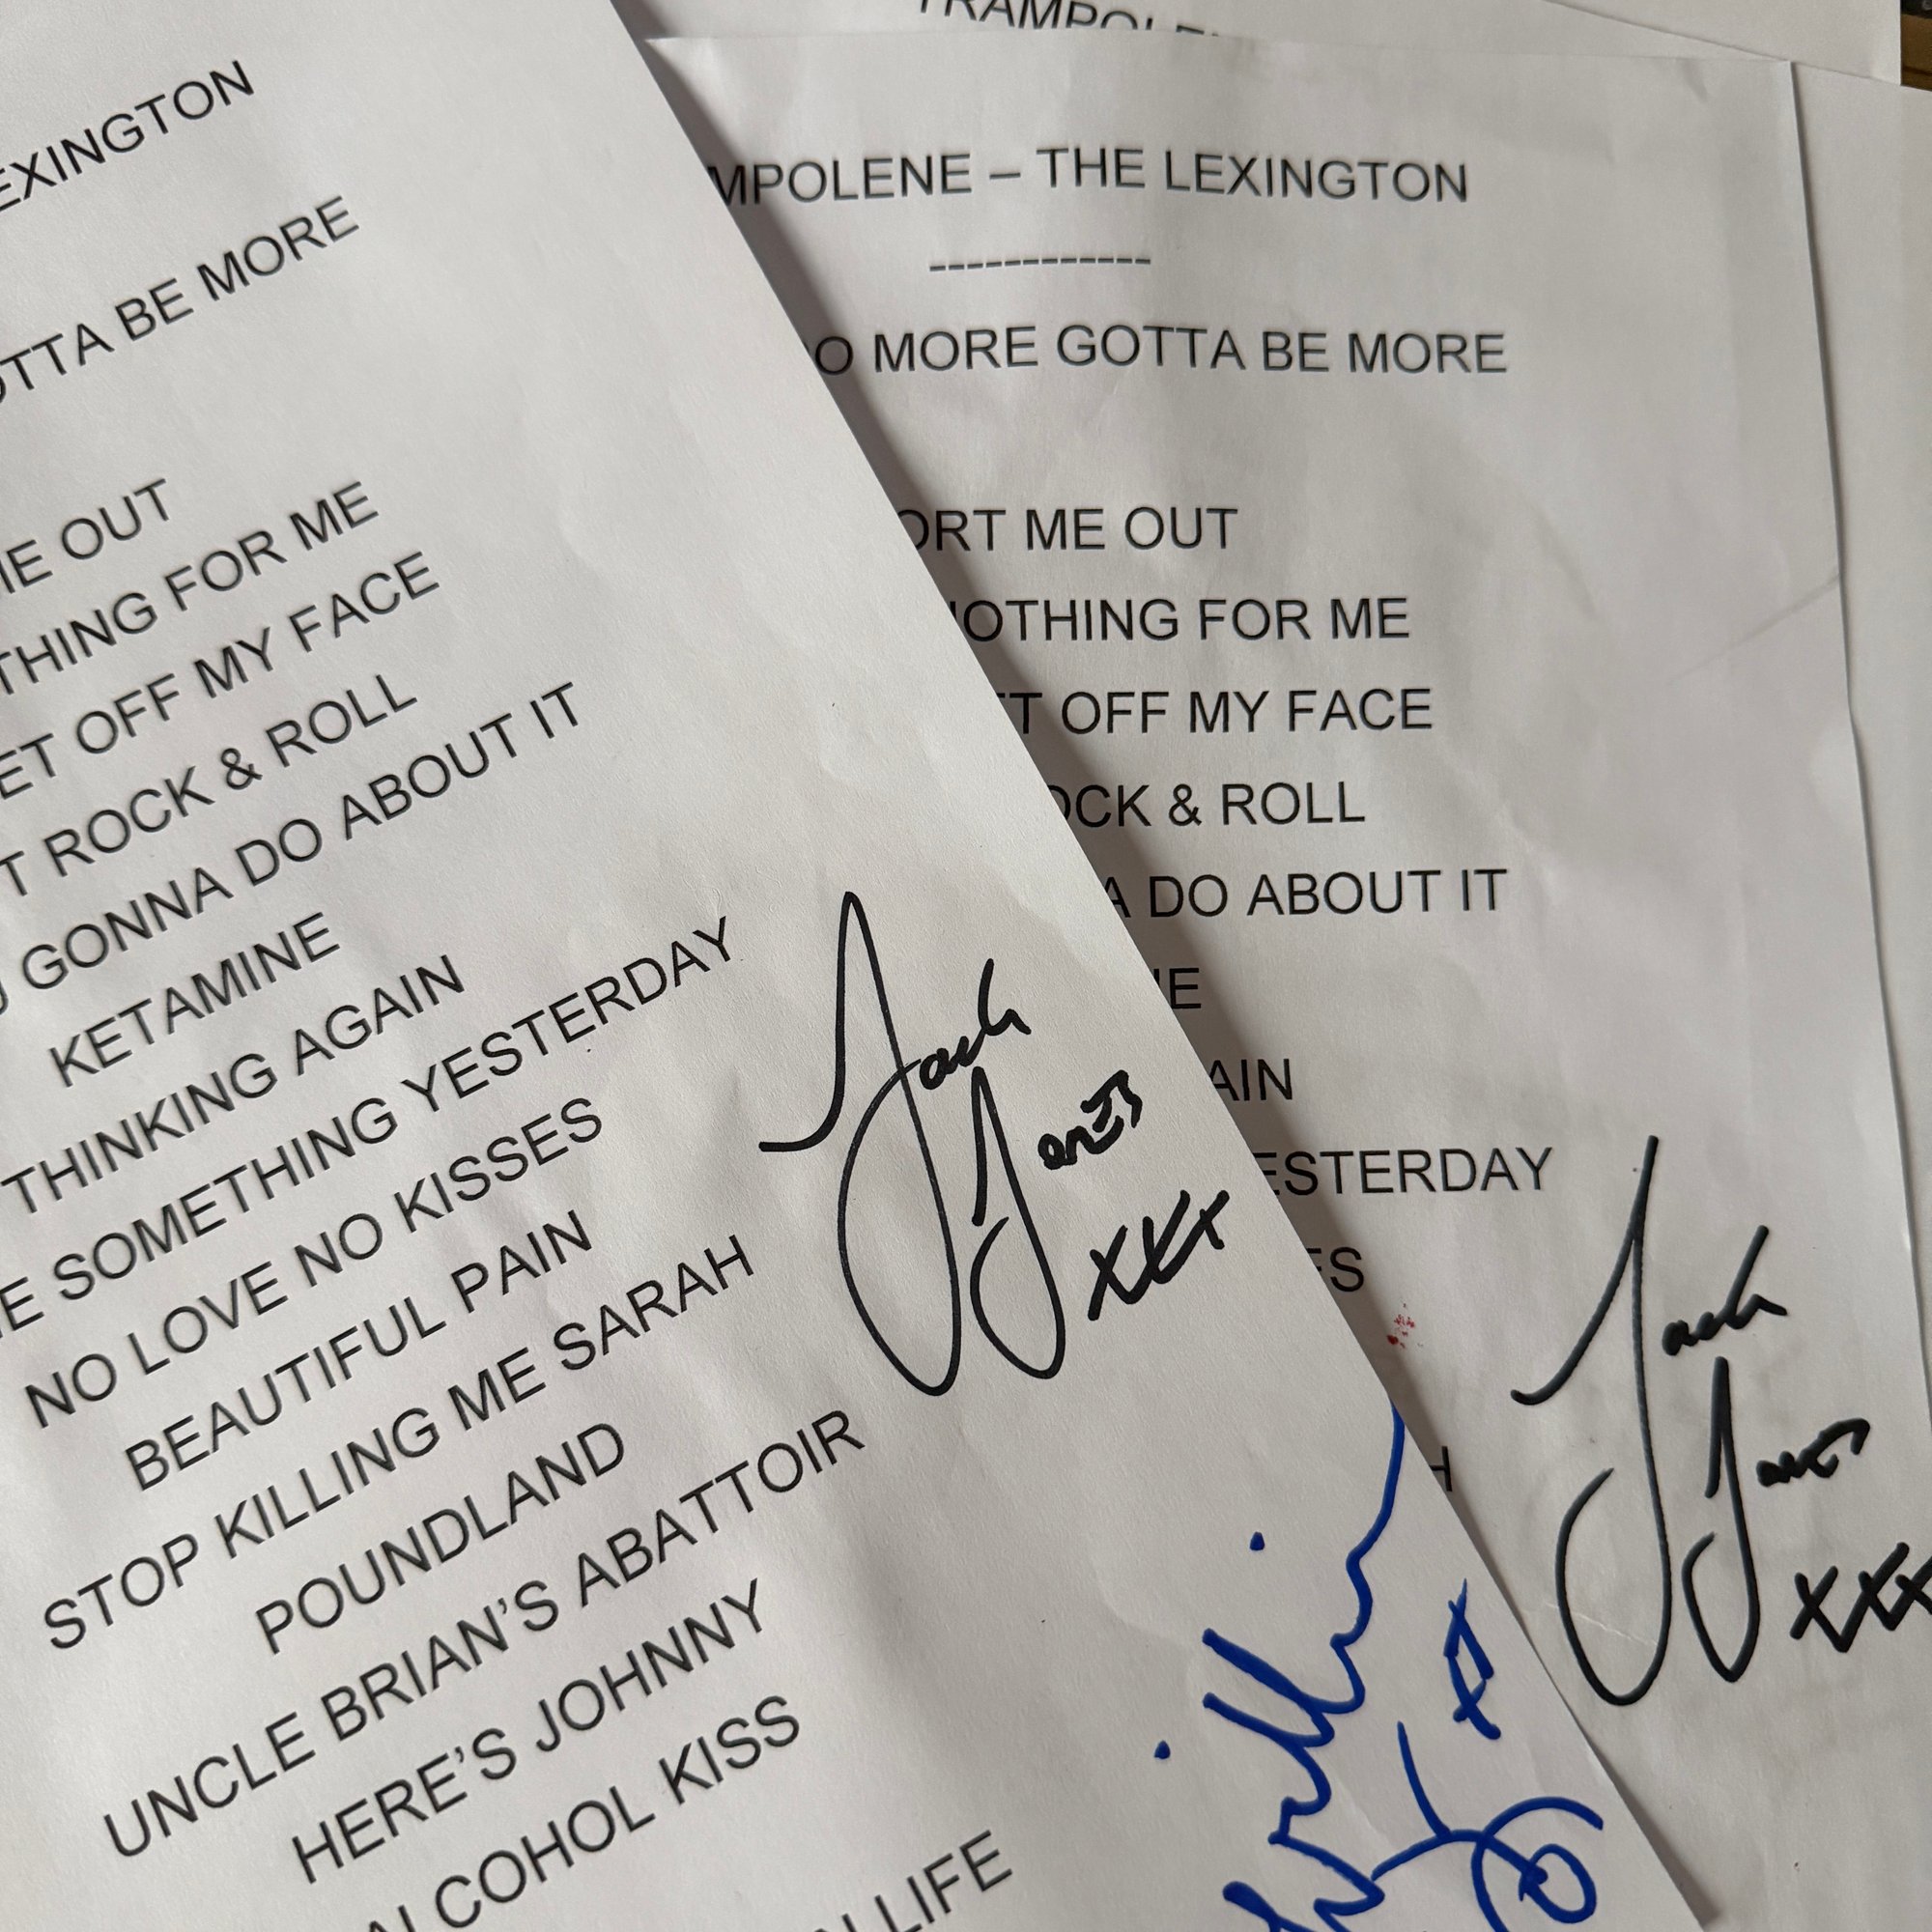 EXINGTON
OTTA BE MORE
ME OUT
THING FOR ME
ET OFF MY FACE
T ROCK & ROLL
U GONNA DO ABOUT IT
KETAMINE
THINKING AGAIN
E SOMETHING YESTERDAY
NO LOVE NO KISSES
BEAUTIFUL PAIN
STOP KILLING ME SARAH
POUNDLAND
UNCLE BRIAN'S ABATTOIR
HERE'S JOHNNY
ALCOHOL KISS
LIFE
Jack
Jones
xxx
TRAMPOLENE
MPOLENE – THE LEXINGTON
------------
O MORE GOTTA BE MORE
ORT ME OUT
NOTHING FOR ME
T OFF MY FACE
OCK & ROLL
A DO ABOUT IT
NE
AIN
ESTERDAY
ES
H
Jack
Jones
xxx